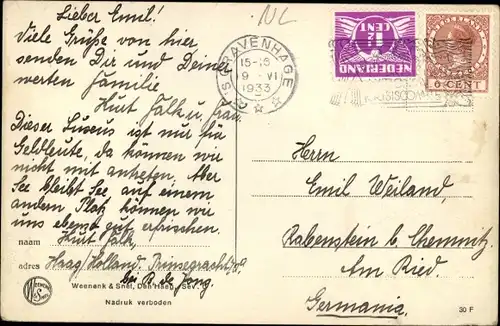 NL
Lieber Emil!
Viele Grüße von hier
senden Dir und Deiner
werten Familie
Kurt Falk u. frau
Dieser Luxus ist nur für
Geldleute, da können wir
nicht mit antreten. Aber
See bleibt See, auf einem
andern Platz können wir
uns ebenso gut erfrischen.
naam Kurt Falk,
adres Haag Holland. Prinsegracht
bei R. de Jong.
Weenenk & Snel, Den Haag, Sev.
Nadruk verboden
'S GRAVENHAGE
15-16
9 VI
1933
1½
CENT
NEDERLAND
NEDERLAND
6 CENT
Herrn
Emil Weiland,
Rabenstein b/ Chemnitz
Am Ried.
Germania.
30 F